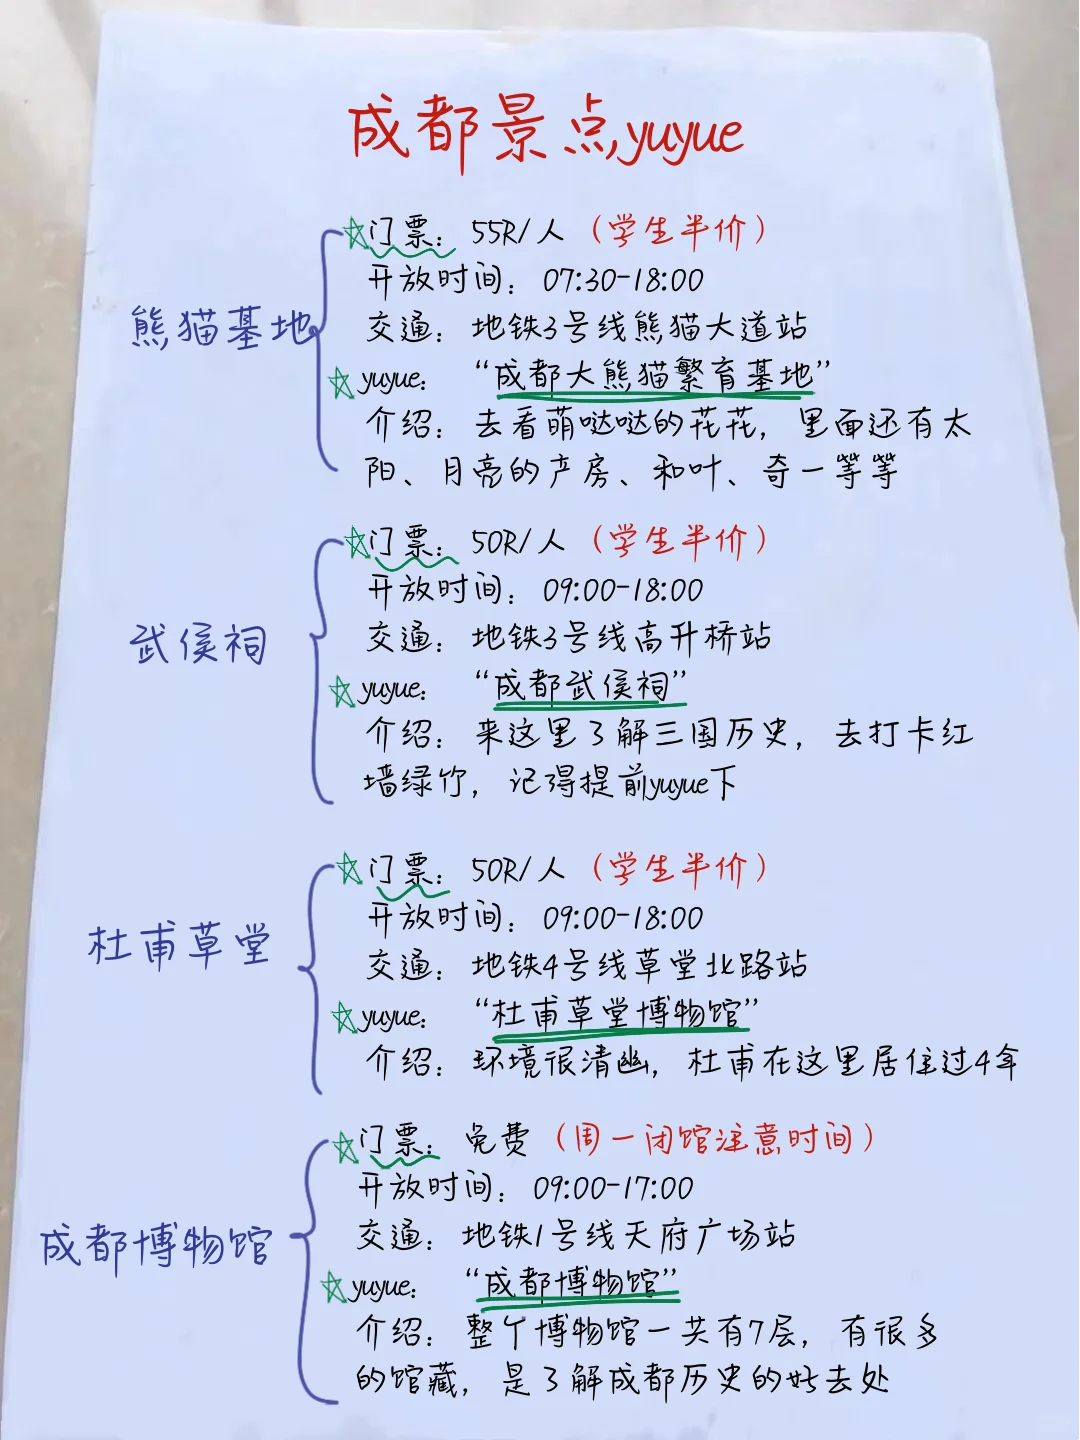 成都景点yuyue
熊猫基地
门票：55R/人（学生半价）
开放时间：07:30-18:00
交通：地铁3号线熊猫大道站
yuyue：“成都大熊猫繁育基地”
介绍：去看萌哒哒的花花，里面还有太
阳、月亮的产房、和叶、奇一等等
武侯祠
门票：50R/人（学生半价）
开放时间：09:00-18:00
交通：地铁3号线高升桥站
yuyue：“成都武侯祠”
介绍：来这里了解三国历史，去打卡红
墙绿竹，记得提前yuyue下
杜甫草堂
门票：50R/人（学生半价）
开放时间：09:00-18:00
交通：地铁4号线草堂北路站
yuyue：“杜甫草堂博物馆”
介绍：环境很清幽，杜甫在这里居住过4年
成都博物馆
门票：免费（周一闭馆注意时间）
开放时间：09:00-17:00
交通：地铁1号线天府广场站
yuyue：“成都博物馆”
介绍：整个博物馆一共有7层，有很多
的馆藏，是了解成都历史的好去处